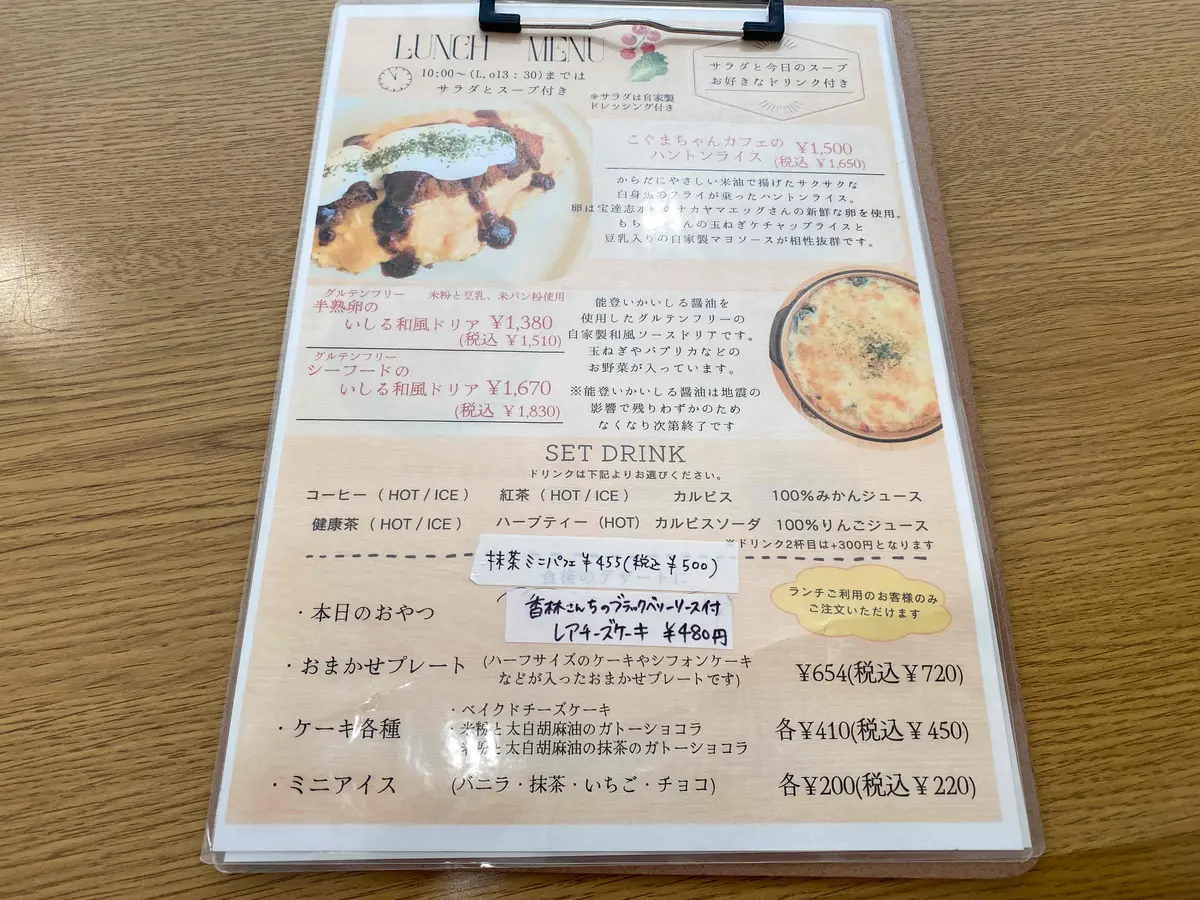 LUNCH MENU
10:00～(L.o13：30)までは
サラダとスープ付き
※サラダは自家製
ドレッシング付き
サラダと今日のスープ
お好きなドリンク付き
こぐまちゃんカフェの
ハントンライス
¥1,500
(税込 ¥1,650)
からだにやさしい米油で揚げたサクサクな
白身魚のフライが乗ったハントンライス。
卵は宝達志水 ナカヤマエッグさんの新鮮な卵を使用。
もち んの玉ねぎケチャップライスと
豆乳入りの自家製マヨソースが相性抜群です。
グルテンフリー 米粉と豆乳、米パン粉使用
半熟卵の
いしる和風ドリア ¥1,380
(税込 ¥1,510)
グルテンフリー
シーフードの
いしる和風ドリア ¥1,670
(税込 ¥1,830)
能登いかいしる醤油を
使用したグルテンフリーの
自家製和風ソースドリアです。
玉ねぎやパプリカなどの
お野菜が入っています。
※能登いかいしる醤油は地震の
影響で残りわずかのため
なくなり次第終了です
SET DRINK
ドリンクは下記よりお選びください。
コーヒー（ HOT / ICE ） 紅茶（ HOT / ICE ） カルピス 100%みかんジュース
健康茶（ HOT / ICE ） ハーブティー（HOT） カルピスソーダ 100%りんごジュース
※ドリンク2杯目は+300円となります
抹茶ミニパフェ ¥455(税込 ¥500)
食後のデザートに
ランチご利用のお客様のみ
ご注文いただけます
・本日のおやつ
香林さんちのブラックベリーソース付
レアチーズケーキ ¥480円
・おまかせプレート (ハーフサイズのケーキやシフォンケーキ
などが入ったおまかせプレートです)
¥654(税込¥720)
・ケーキ各種
・ベイクドチーズケーキ
・米粉と太白胡麻油のガトーショコラ
米粉と太白胡麻油の抹茶のガトーショコラ
各¥410(税込¥450)
・ミニアイス (バニラ・抹茶・いちご・チョコ) 各¥200(税込¥220)